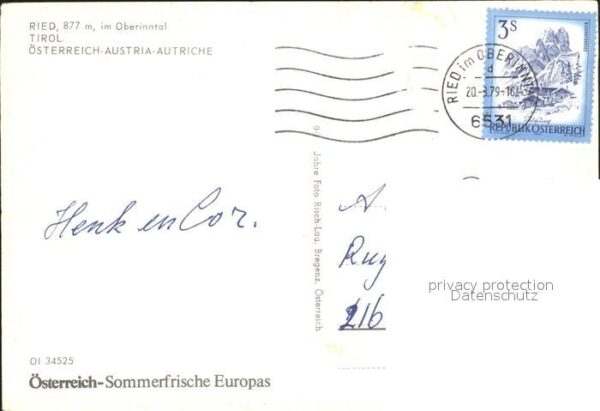 RIED, 877 m, im Oberinntal
TIROL
ÖSTERREICH-AUSTRIA-AUTRICHE
3S
REPUBLIK ÖSTERREICH
RIED im OBERINNTAL
d
20.-8.79-16
6531
Jahre Foto Risch-Lau, Bregenz, Österreich
Henk en Cor.
A.
Rug
216
privacy protection
Datenschutz
OI 34525
Österreich-Sommerfrische Europas